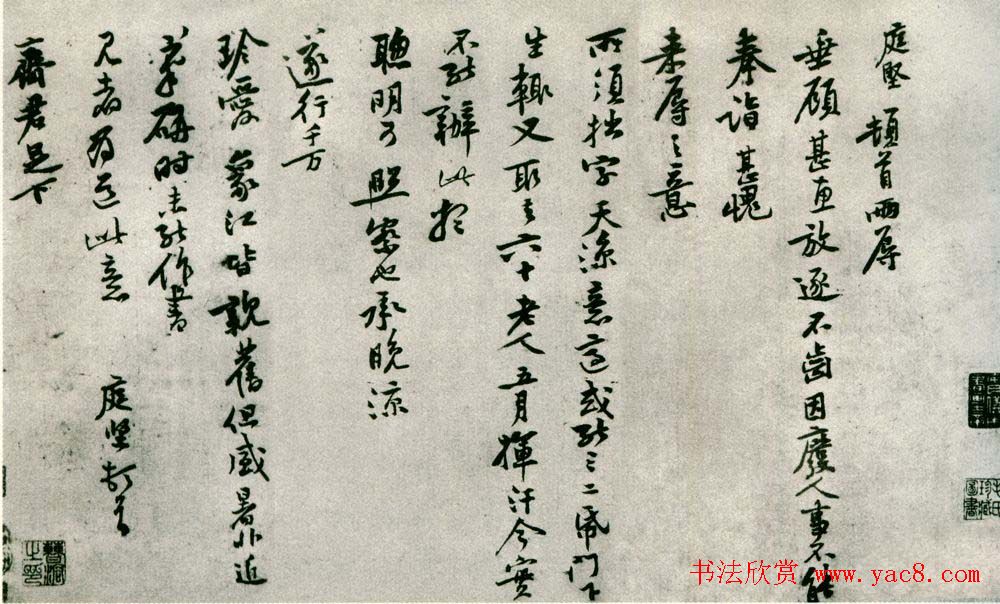 庭堅頓首兩辱
垂顧甚惠放逐不齒因廢人事不能
奉詣甚愧
来辱之意
所須拙字天凉意適或能三二紙門下
生輒又取去六十老人五月揮汗今實
不能辦此想
聰明可照察也承晚凉
遂行千万
珍愛象江皆親舊但盛暑非近
筆研時未能作書
見者為道此意
齋君足下
庭坚頓首
书法欣赏 www.yac8.com